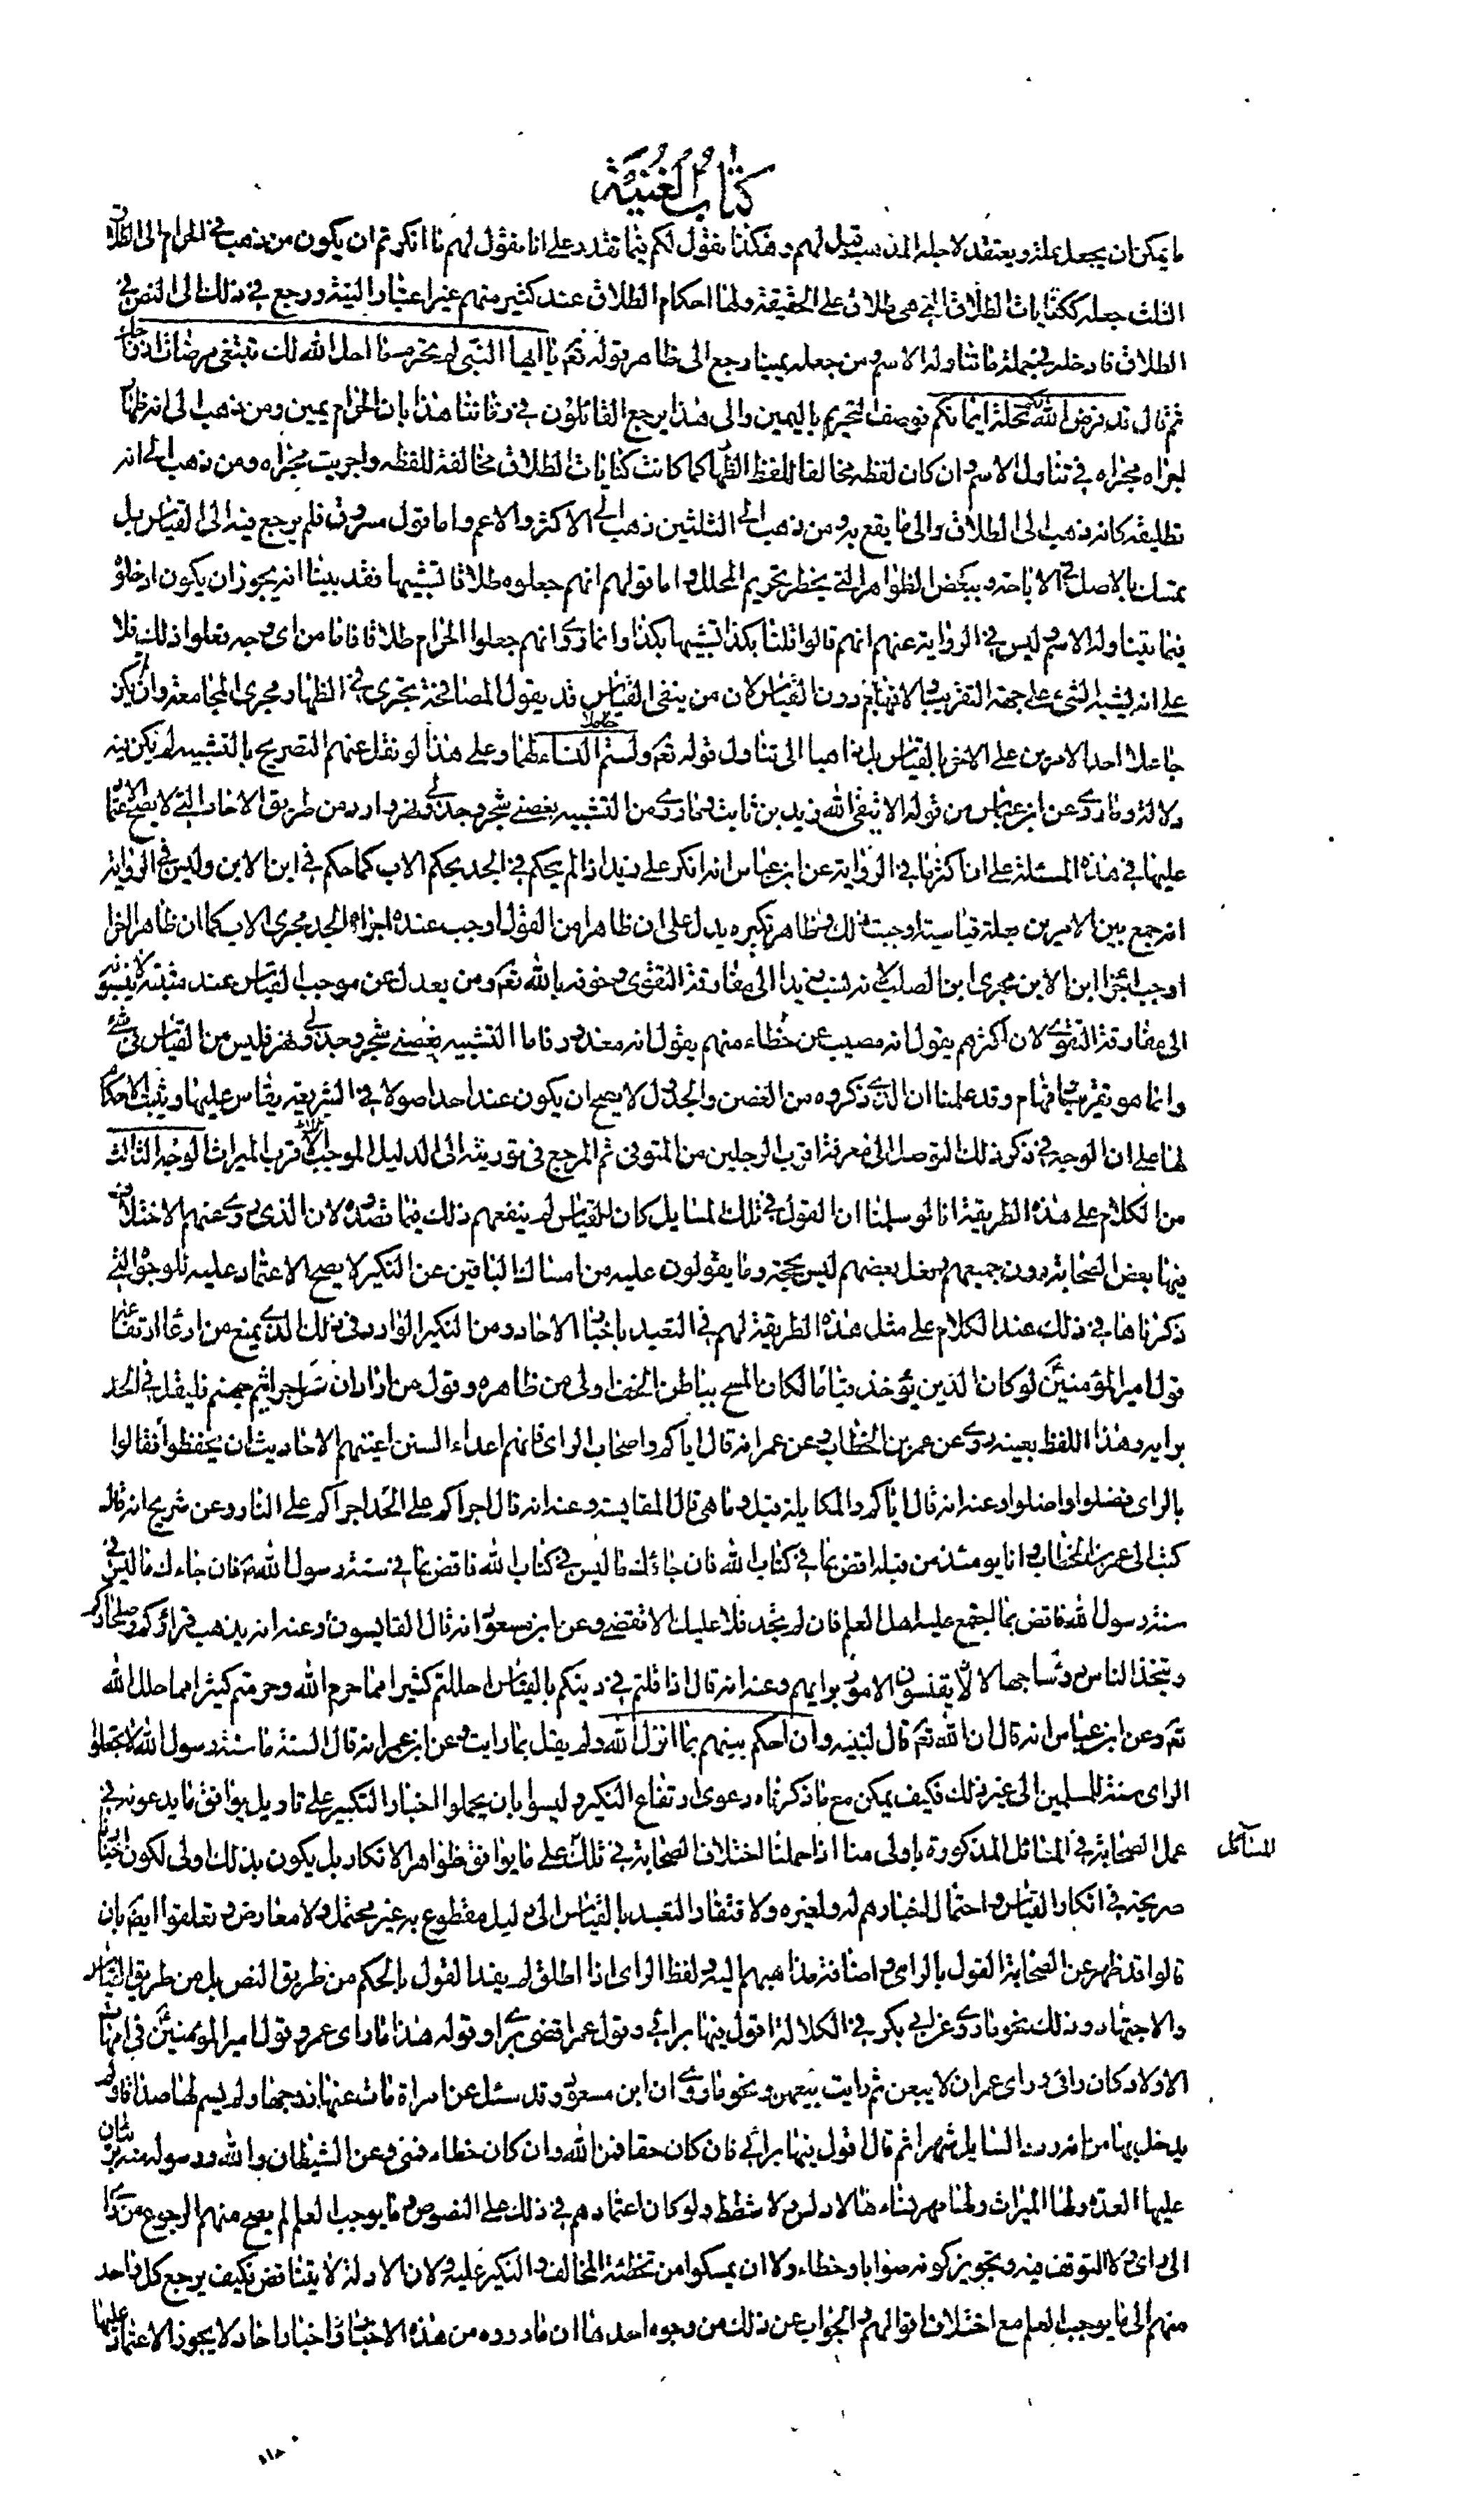 كتاب الغنية
ما يمكن ان يجعل علة ويعتقد لاجله المذهب قيل لهم وهكذا نقول لكم فيما تقدم على انا نقول لهم ما انكرتم ان يكون من ذهب في الحرام الى الطلاق
الثلث جعله ككنايات الطلاق التي هي طلاق على الحقيقة ولها احكام الطلاق عند كثير منهم غير اعتبار النية ورجع في ذلك الى النص في
الطلاق فادخله في جملة ما تناوله الاسم ومن جعله يمينا رجع الى ظاهر قوله تعم يا ايها النبي لم تحرم ما احل الله لك تبتغي مرضات ازواجك
ثم قال قد فرض الله لكم تحلة ايمانكم فوصف التحريم باليمين والى هذا يرجع القائلون في وقتنا هذا بان الحرام يمين ومن ذهب الى انه ظهار
اجراه مجراه في تناول الاسم وان كان لفظه مخالفا للفظ الظهار كما كانت كنايات الطلاق مخالفة للفظه واجريت مجراه ومن ذهب الى انه
تطليقة كانه ذهب الى الطلاق والى ما يقع به ومن ذهب الى الثلثين ذهب الى الاكثر والاعم واما قول مسروق فلم يرجع فيه الى القياس بل
تمسك بالاصل في الاباحة وببعض الظواهر التي يحظر تحريم المحلل واما قولهم انهم جعلوه طلاقا تشبيها فقد بينا انه يجوز ان يكون ادخلوه
فيما يتناوله الاسم وليس في الرواية عنهم انهم قالوا قلنا بكذا تشبيها بكذا وانما روى انهم جعلوا الحرام طلاقا فاما من اي وجه فعلوا ذلك فلا
على انه يشبه الشئ على جهة التقريب والافهام دون القياس لان من ينفى القياس قد يقول المصافحة تجرى في الظهار مجرى المجامعة وان لم يكن
جاعلا احد الامرين على الاخر بالقياس بل ذاهبا الى تناول قوله تعم ولستم النساء لهما وعلى هذا لو نقل عنهم التصريح بالتشبيه لم يكن فيه
دلالة وما روى عن ابن عباس من قوله الا يتقى الله زيد بن ثابت وما روى من التشبيه بغصنى شجرة وجدولى نهر وارد من طريق الاحاد التي لا يصح الاعتماد
عليها في هذه المسئلة على ان اكثر ما في الرواية عن ابن عباس انه انكر على زيد اذ لم يحكم في الجد بحكم الاب كما حكم في ابن الابن وليس في الرواية
انه جمع بين الامرين بعلة قياسية اوجبت ذلك وظاهر نكيره يدل على ان ظاهرا من القول اوجب عنده اجراء الجد مجرى الاب كما ان ظاهرا اخر
اوجب اجراء ابن الابن مجرى ابن الصلب لانه نسب زيدا الى مفارقة التقوى وخوفه بالله تعم ومن يعدل عن موجب القياس عند مثبتيه لا ينسبونه
الى مفارقة التقوى لان اكثرهم يقول انه مصيب ومن خطاء منهم يقول انه معذور فاما التشبيه بغصنى شجرة وجدولى نهر فليس من القياس في شئ
وانما هو تقريب وافهام وقد علمنا ان الذي ذكروه من الغصن والجدول لا يصح ان يكون عند احد اصولا في الشريعة يقاس عليها ويثبت الاحكام
لها على ان الوجه في ذكر ذلك التوصل الى معرفة اقرب الرجلين من المتوفى ثم المرجع فى توريثه الى الدليل الموجب للاقرب الميراث الوجه الثالث
من الكلام على هذه الطريقة انا لو سلمنا ان القول في تلك المسايل كان للقياس لم ينفعهم ذلك فيما قصدوه لان الذى روى عنهم الاختلاف
فيها بعض الصحابة دون جميعهم وفعل بعضهم ليس بحجة وما يقولون عليه من امساك الباقين عن النكير لا يصح الاعتماد عليه للوجوه التي
ذكرناها في ذلك عند الكلام على مثل هذه الطريقة لهم في التعبد باخبار الاحاد ومن النكير الوارد فى ذلك الذي يمنع من ادعاء ارتفاعه
قول امير المؤمنين لو كان الدين يؤخذ قياسا لكان المسح بباطن الخف اولى من ظاهره وقول من اراد ان يتقحم جراثيم جهنم فليقل في الجد
برايه وهذا اللفظ بعينه روى عن عمر بن الخطاب وعن عمر انه قال اياكم واصحاب الراى فانهم اعداء السنن اعيتهم الاحاديث ان يحفظوها فقالوا
بالراى فضلوا واضلوا وعنه انه قال اياكم والمكايلة قيل وما هي قال المقايسة وعنه انه قال اجراكم على الجد اجراكم على النار وعن شريح انه قال
كتب الى عمر بن الخطاب وانا يومئذ من قبله اقض بما في كتاب الله فان جاءك ما ليس في كتاب الله فاقض بما في سنة رسول الله ص فان جاءك ما ليس في
سنة رسول الله فاقض بما اجمع عليه اهل العلم فان لم تجد فلا عليك الا تقضى وعن ابن مسعود انه قال القايسون وعنه انه يذهب قراؤكم وصلحاؤكم
ويتخذ الناس رؤسا جهالا يقيسون الامور برايهم وعنه انه قال اذا قلتم في دينكم بالقياس احللتم كثيرا مما حرم الله وحرمتم كثيرا مما حلل الله
تعم وعن ابن عباس انه قال ان الله تعم قال لنبيه وان احكم بينهم بما انزل الله ولم يقل بما رايت وعن ابن عمر انه قال السنة ما سنه رسول الله لا تجعلوا
الراى سنة للمسلمين الى غير ذلك فكيف يمكن مع ما ذكرناه دعوى ارتفاع النكير وليسوا بان يحملوا اخبار النكير على تاويل يوافق ما يدعونه في
عمل الصحابة في المسائل المذكورة باولى منا اذا حملنا اختلاف الصحابة في تلك على ما يوافق ظواهر الانكار بل يكون بذلك اولى لكون اخبارنا
المسائل
صريحة في انكار القياس واحتمال اخبارهم له ولغيره ولافتقار التعبد بالقياس الى دليل مقطوع به غير محتمل ولا معارض وتعلقوا ايضا بان
قالوا قد ظهر عن الصحابة القول بالراى واضافة مذاهبهم اليه ولفظ الراى اذا اطلق لم يفد القول بالحكم من طريق النص بل من طريق القياس
والاجتهاد وذلك نحو ما روى عن ابي بكر في الكلالة اقول فيها برائي وقول عمر اقضى برائي وقوله هذا ما راى عمر وقول امير المؤمنين في امهات
الاولاد كان رائى وراى عمر ان لا يبعن ثم رايت بيعهن ونحو ما روى ان ابن مسعود وقد سئل عن امراة مات عنها زوجها ولم يسم لها صداقا ولم
يدخل بها من انه ردد السايل شهرا ثم قال اقول فيها برائي فان كان حقا فمن الله وان كان خطاء فمنى ومن الشيطان والله ورسوله منه بريئان
عليها العدة ولها الميراث ولها مهر نساءها لا وكس ولا شطط ولو كان اعتمادهم في ذلك على النصوص وما يوجب العلم لم يصح منهم الرجوع من راى
الى راى ولا التوقف فيه وتجويز كونه صوابا وخطاء ولا ان يمسكوا من تخطئة المخالف والنكير عليه ولان الادلة لا يتناقض فكيف يرجع كل واحد
منهم الى ما يوجب العلم مع اختلاف اقوالهم والجواب عن ذلك من وجوه احدها ان ما رووه من هذه الاخبار اخبار احاد لا يجوز الاعتماد عليها